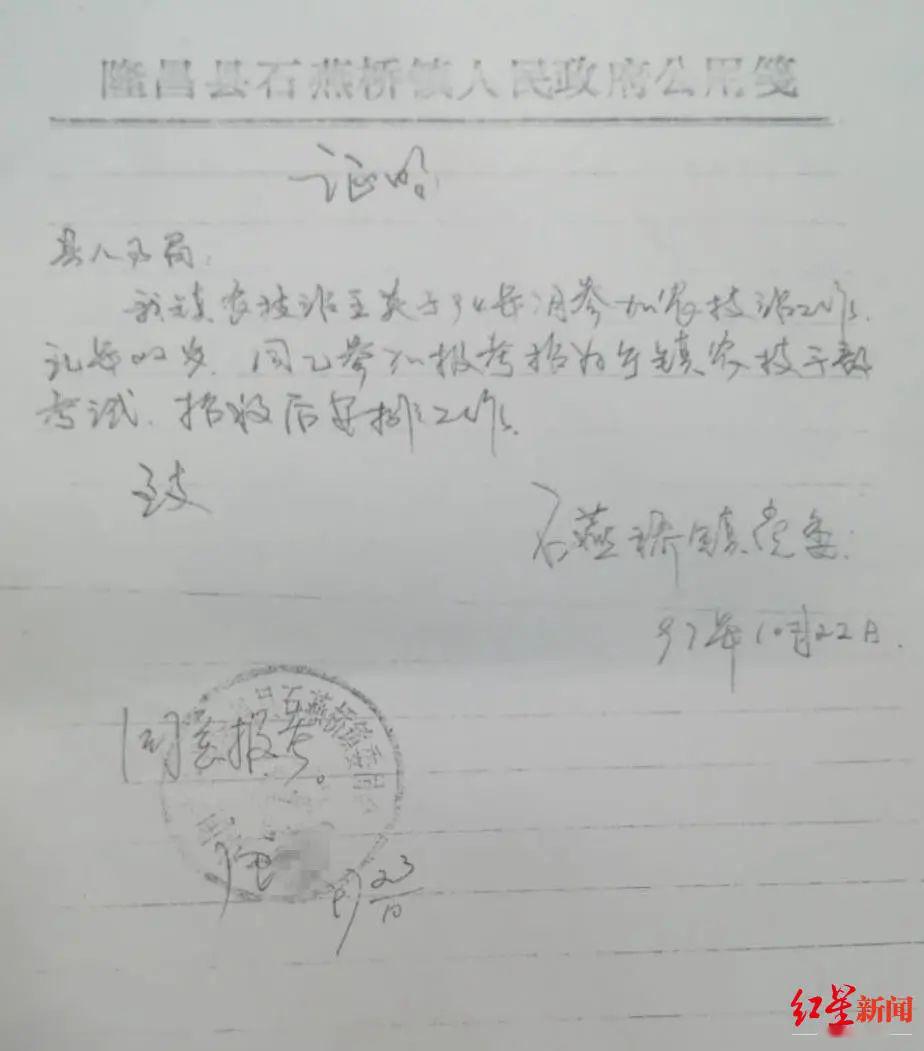 隆昌县石燕桥镇人民政府公用笺
证明
县人事局:
我镇农技站王英于94年7月参加农技站工作,
同意参加报考招为乡镇农技干部
考试,招收后安排工作。
致
石燕桥镇党委:
97年10月22日.
石燕桥镇委员
同意报考。
23/10
红星新闻